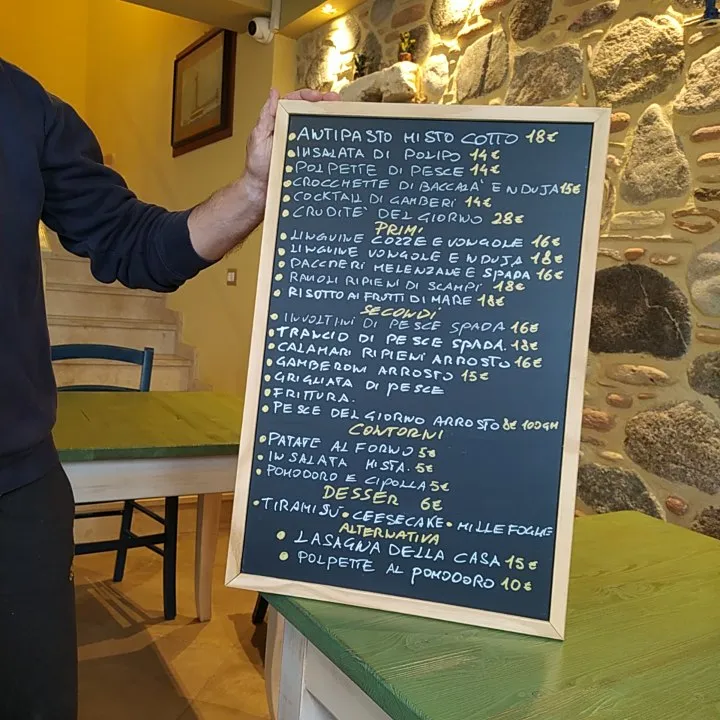 ANTIPASTO MISTO COTTO 18€
INSALATA DI POLIPO 14€
POLPETTE DI PESCE 14€
CROCCHETTE DI BACCALA' E NDUJA 15€
COCKTAIL DI GAMBERI 14€
CRUDITE' DEL GIORNO 28€
PRIMI
LINGUINE COZZE E VONGOLE 16€
LINGUINE VONGOLE E NDUJA 18€
PACCHERI MELENZANE E SPADA 16€
RAVIOLI RIPIENI DI SCAMPI 18€
RISOTTO AI FRUTTI DI MARE 18€
SECONDI
INVOLTINI DI PESCE SPADA 16€
TRANCIO DI PESCE SPADA. 18€
CALAMARI RIPIENI ARROSTO 16€
GAMBERONI ARROSTO 15€
GRIGLIATA DI PESCE
FRITTURA.
PESCE DEL GIORNO ARROSTO 8€ 100GR
CONTORNI
PATATE AL FORNO 5€
INSALATA MISTA. 5€
POMODORO E CIPOLLA 5€
DESSER 6€
TIRAMISÙ • CEESECAKE • MILLEFOGLIE
ALTERNATIVA
LASAGNA DELLA CASA 15€
POLPETTE AL POMODORO 10€